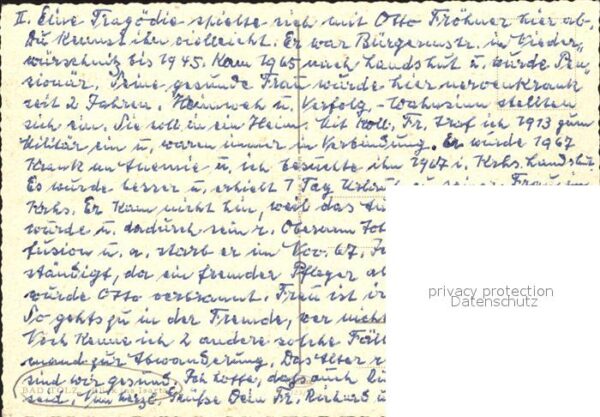 II. Eine Tragödie spielte sich mit Otto Fröhner hier ab.
Du kennst ihn vielleicht. Er war Bürgermstr. in Nieder-
würschnitz bis 1945. Kam 1965 nach Landshut u. wurde Pen-
sionär. Seine gesunde Frau wurde hier nervenkrank
seit 2 Jahren. Heimweh u. Verfolg.-Wahnsinn stellten
sich ein. Sie soll in ein Heim. Mit Koll. Fr. traf ich 1913 zum
Militär ein u. waren immer in Verbindung. Er wurde 1967
krank an Anemie u. ich besuchte ihn 1967 i. Krks. Landshut
Es wurde besser u. erhielt 1 Tag zu seiner Frau
Krks. Er kam nicht hin, weil das
wurde u. dadurch sein r. Oberarm
fusion u. a. starb er im Nov. 67.
ständigt, da ein fremder Pfleger
wurde Otto verbrannt. Frau ist
So gehts zu in der Fremde, wer
Noch kenne ich 2 andere solche
mand zur Abwanderung. Das Alter
sind wir gesund. Ich hoffe, dass auch
seid. Nun herzl. Grüße Dein Fr. Richard
BAD TÖLZ
privacy protection
Datenschutz